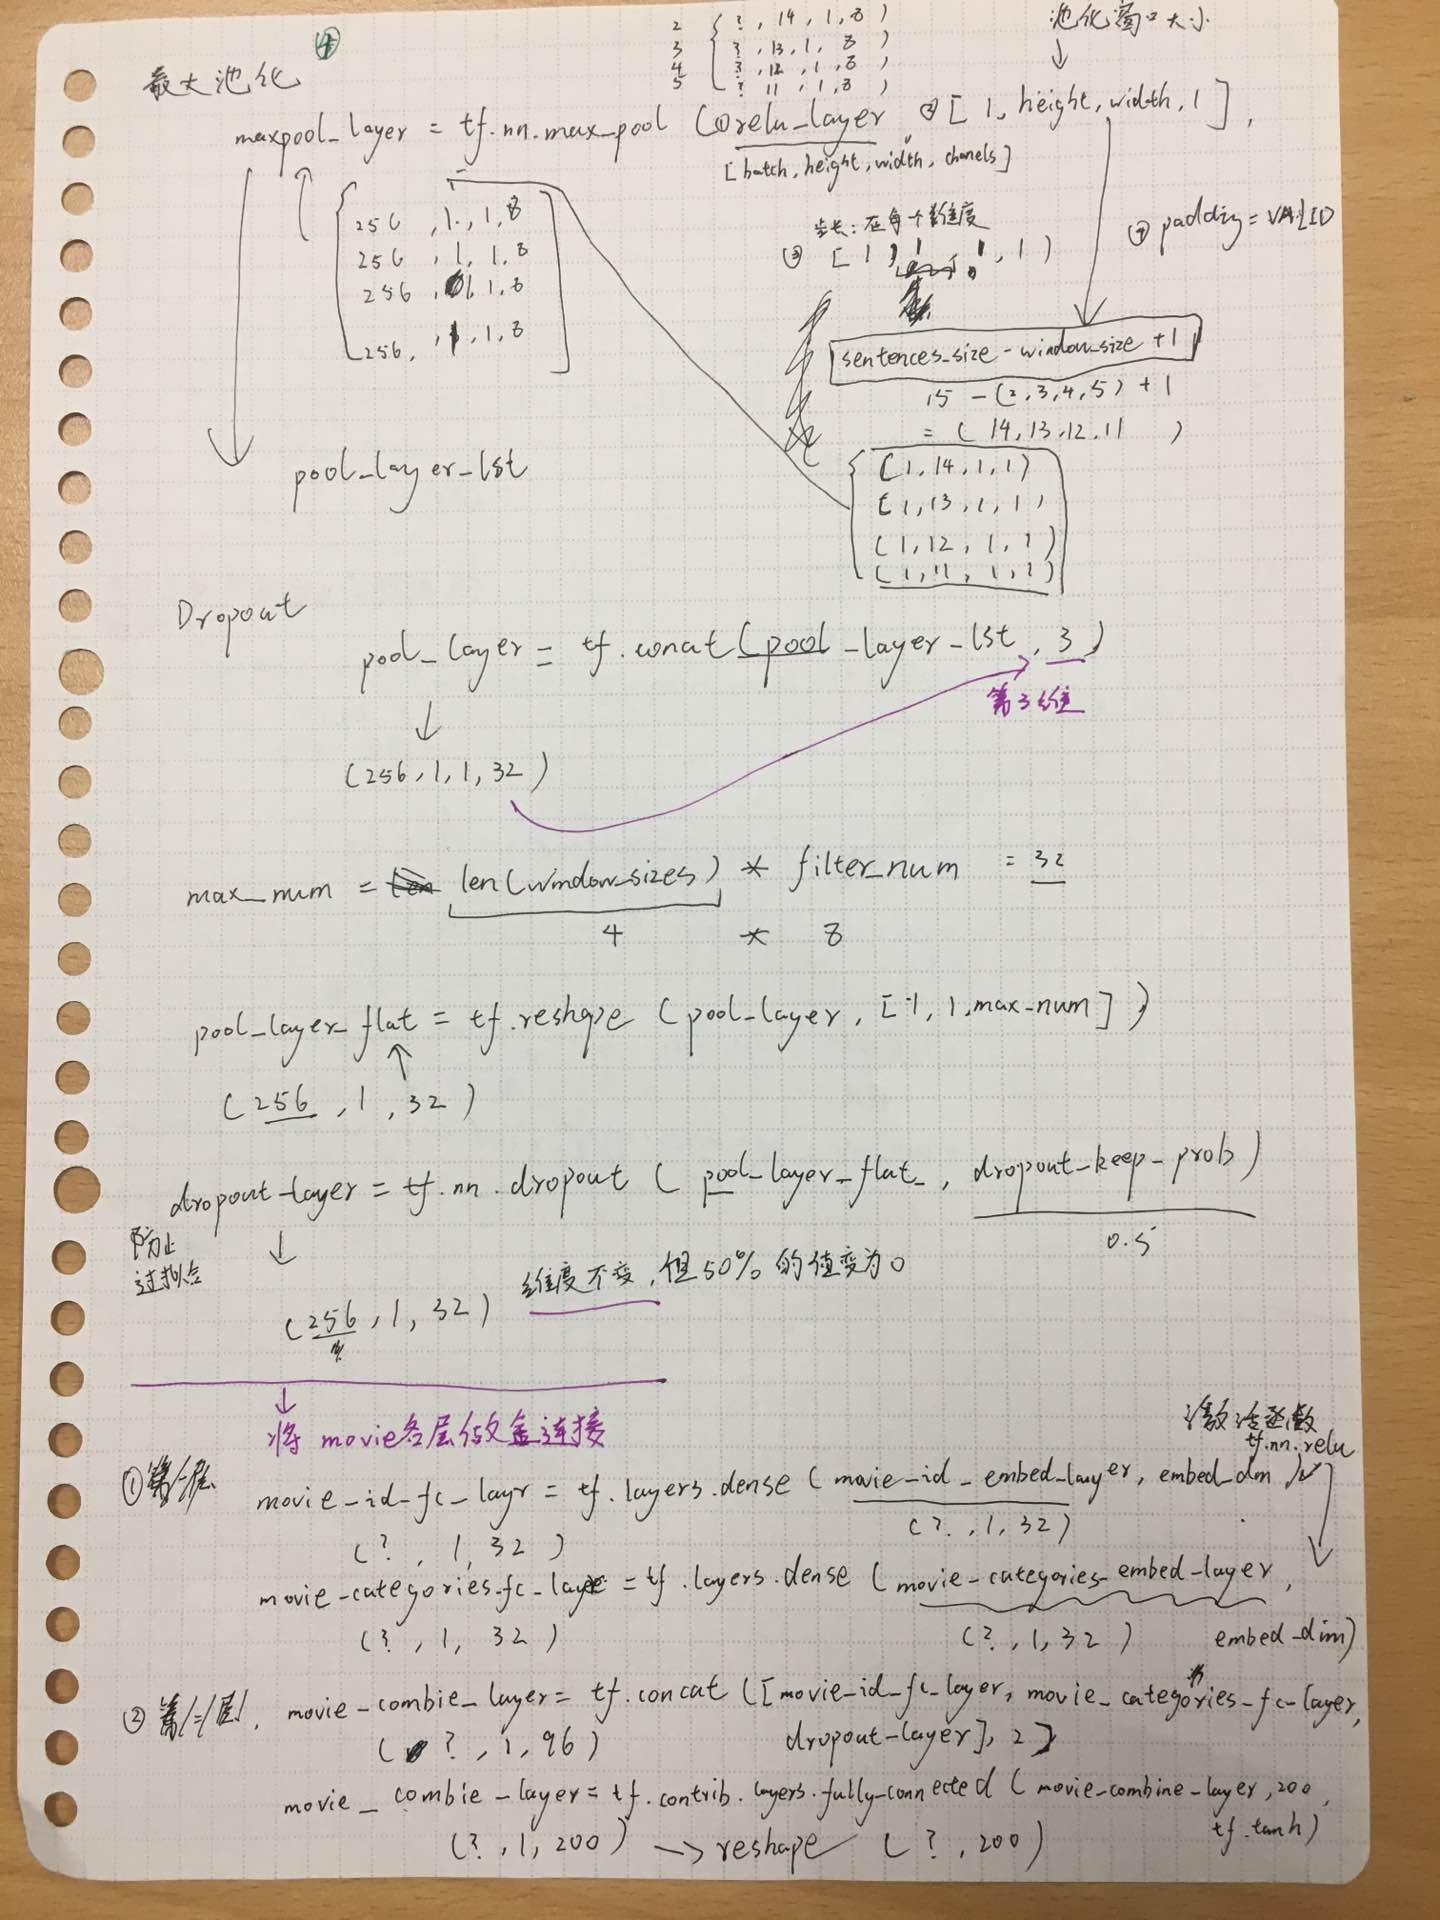 ④
2 (?, 14, 1, 8)
3 (?, 13, 1, 8)
4 (?, 12, 1, 8)
5 (?, 11, 1, 8)
池化窗口大小
最大池化
maxpool_layer = tf.nn.max_pool (①relu_layer, ②[1, height, width, 1],
[batch, height, width, chanels]
256, 1, 1, 8
256, 1, 1, 8
256, 1, 1, 8
256, 1, 1, 8
步长:在每个维度
③ [1, 1, 1, 1)
④ padding = VALID
sentences_size - window_size + 1
15 - (2,3,4,5) + 1
= (14,13,12,11)
pool_layer_lst
[1,14,1,1)
[1,13,1,1)
(1,12,1,1)
(1,11,1,1)
Dropout
pool_layer = tf.concat(pool_layer_lst, 3)
第3维
(256,1,1,32)
max_num = len(window_sizes) * filter_num = 32
4 * 8
pool_layer_flat = tf.reshape (pool_layer, [-1, 1, max_num])
(256, 1, 32)
dropout_layer = tf.nn.dropout (pool_layer_flat, dropout_keep_prob)
0.5
防止
过拟合
维度不变,但50%的值变为0
(256, 1, 32)
将movie各层做全连接
激活函数
tf.nn.relu
①第一层
movie_id_fc_layr = tf.layers.dense (movie_id_embed_layer, embed_dm)
(?, 1, 32)
(?, 1, 32)
movie_categories_fc_laye = tf.layers.dense (movie_categories_embed_layer,
(?, 1, 32)
(?, 1, 32) embed_dim)
②第二层. movie_combie_layer = tf.concat ([movie_id_fc_layer, movie_categories_fc_layer,
(?, 1, 96) dropout_layer], 2]
movie_combie_layer = tf.contrib.layers.fully_connected (movie_combine_layer, 200,
(?, 1, 200) → reshape (?, 200) tf.tanh)